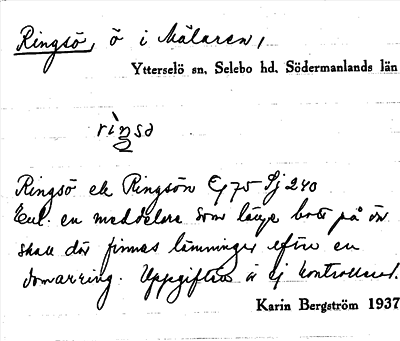 Ringsö, ö i Mälaren,
Ytterselö sn, Selebo hd, Södermanlands län
rìngsə
Ringsö el. Ringsön Eg 75 Sj 240
Enl. en meddelare som länge bott på ön
skall där finnas lämningar efter en
domarring. Uppgiften är ej kontrollerad.
Karin Bergström 1937